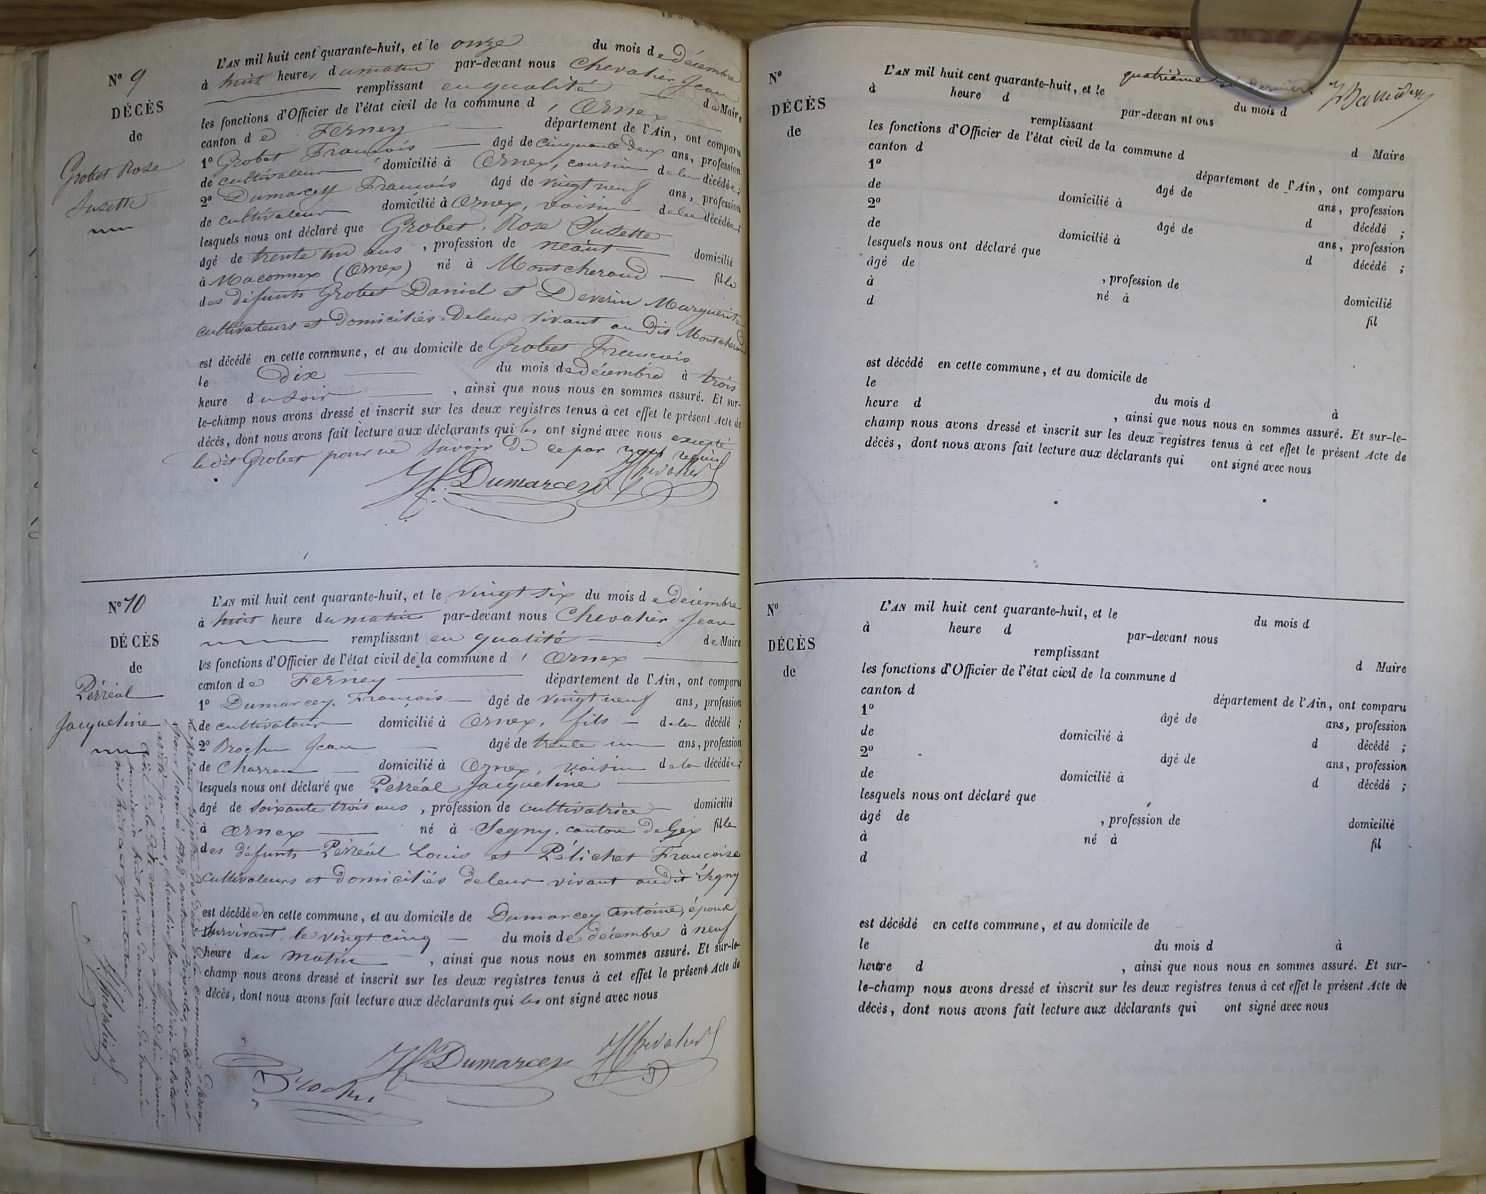 N° 9
DÉCÈS
de
Grobet Rose
Susette
L'AN mil huit cent quarante-huit, et le onze du mois de Décembre
à huit heures du matin par-devant nous Chevalier Jean
remplissant en qualité de Maire
les fonctions d'Officier de l'état civil de la commune d'Ornex
canton de Ferney département de l'Ain, ont comparu
1° Grobet François âgé de cinquante deux ans, profession
de cultivateur domicilié à Ornex, cousin de la décédée ;
2° Dumarcey François âgé de vingt neuf ans, profession
de cultivateur domicilié à Ornex, voisin de la décédée ;
lesquels nous ont déclaré que Grobet, Rose Susette
âgé de trente un ans, profession de néant domicilié
à Maconnex (Ornex) né à Montcheroud fille
des défunts Grobet Daniel et Deverin Marguerite
cultivateurs et domiciliés de leur vivant au dit Montcheroud
est décédé en cette commune, et au domicile de Grobet François
le dix du mois de décembre à trois
heure du soir, ainsi que nous nous en sommes assuré. Et sur-
le-champ nous avons dressé et inscrit sur les deux registres tenus à cet effet le présent Acte de
décès, dont nous avons fait lecture aux déclarants qui les ont signé avec nous excepté
le dit Grobet pour ne savoir de ce par nous requis
Dumarcey Chevalier
N° 10
DÉCÈS
de
Pérréal
Jacqueline
L'AN mil huit cent quarante-huit, et le vingt six du mois de décembre
à huit heure du matin par-devant nous Chevalier Jean
remplissant en qualité de Maire
les fonctions d'Officier de l'état civil de la commune d'Ornex
canton de Ferney département de l'Ain, ont comparu
1° Dumarcey, François âgé de vingt neuf ans, profession
de cultivateur domicilié à Ornex, fils de la décédé ;
2° Brochu Jean âgé de trente un ans, profession
de Charron domicilié à Ornex, voisin de la décédée ;
lesquels nous ont déclaré que Pérréal Jacqueline
âgé de soixante trois ans, profession de cultivatrice domicilié
à Ornex né à Segny, canton de Gex fille
des défunts Pérréal Louis et Pélichet Françoise
cultivateurs et domiciliés de leur vivant audit Segny
est décédée en cette commune, et au domicile de Dumarcey Antoine, époux
survivant le vingt cinq du mois de décembre à neuf
heure du matin, ainsi que nous nous en sommes assuré. Et sur-le-
champ nous avons dressé et inscrit sur les deux registres tenus à cet effet le présent Acte de
décès, dont nous avons fait lecture aux déclarants qui les ont signé avec nous
Dumarcey Chevalier
Brochu
Chevalier
N°
DÉCÈS
de
L'AN mil huit cent quarante-huit, et le quatrième et dernier du mois d
à heure d par-devan nt ous
remplissant d Maire
les fonctions d'Officier de l'état civil de la commune d
canton d département de l'Ain, ont comparu
1° âgé de ans, profession
de domicilié à d décédé ;
2° âgé de ans, profession
de domicilié à d décédé ;
lesquels nous ont déclaré que
âgé de , profession de domicilié
à né à fil
d
est décédé en cette commune, et au domicile de
le du mois d à
heure d , ainsi que nous nous en sommes assuré. Et sur-le-
champ nous avons dressé et inscrit sur les deux registres tenus à cet effet le présent Acte de
décès, dont nous avons fait lecture aux déclarants qui ont signé avec nous
N°
DÉCÈS
de
L'AN mil huit cent quarante-huit, et le du mois d
à heure d par-devant nous
remplissant d Maire
les fonctions d'Officier de l'état civil de la commune d
canton d département de l'Ain, ont comparu
1° âgé de ans, profession
de domicilié à d décédé ;
2° âgé de ans, profession
de domicilié à d décédé ;
lesquels nous ont déclaré que
âgé de , profession de domicilié
à né à fil
d
est décédé en cette commune, et au domicile de
le du mois d à
heure d , ainsi que nous nous en sommes assuré. Et sur-
le-champ nous avons dressé et inscrit sur les deux registres tenus à cet effet le présent Acte de
décès, dont nous avons fait lecture aux déclarants qui ont signé avec nous